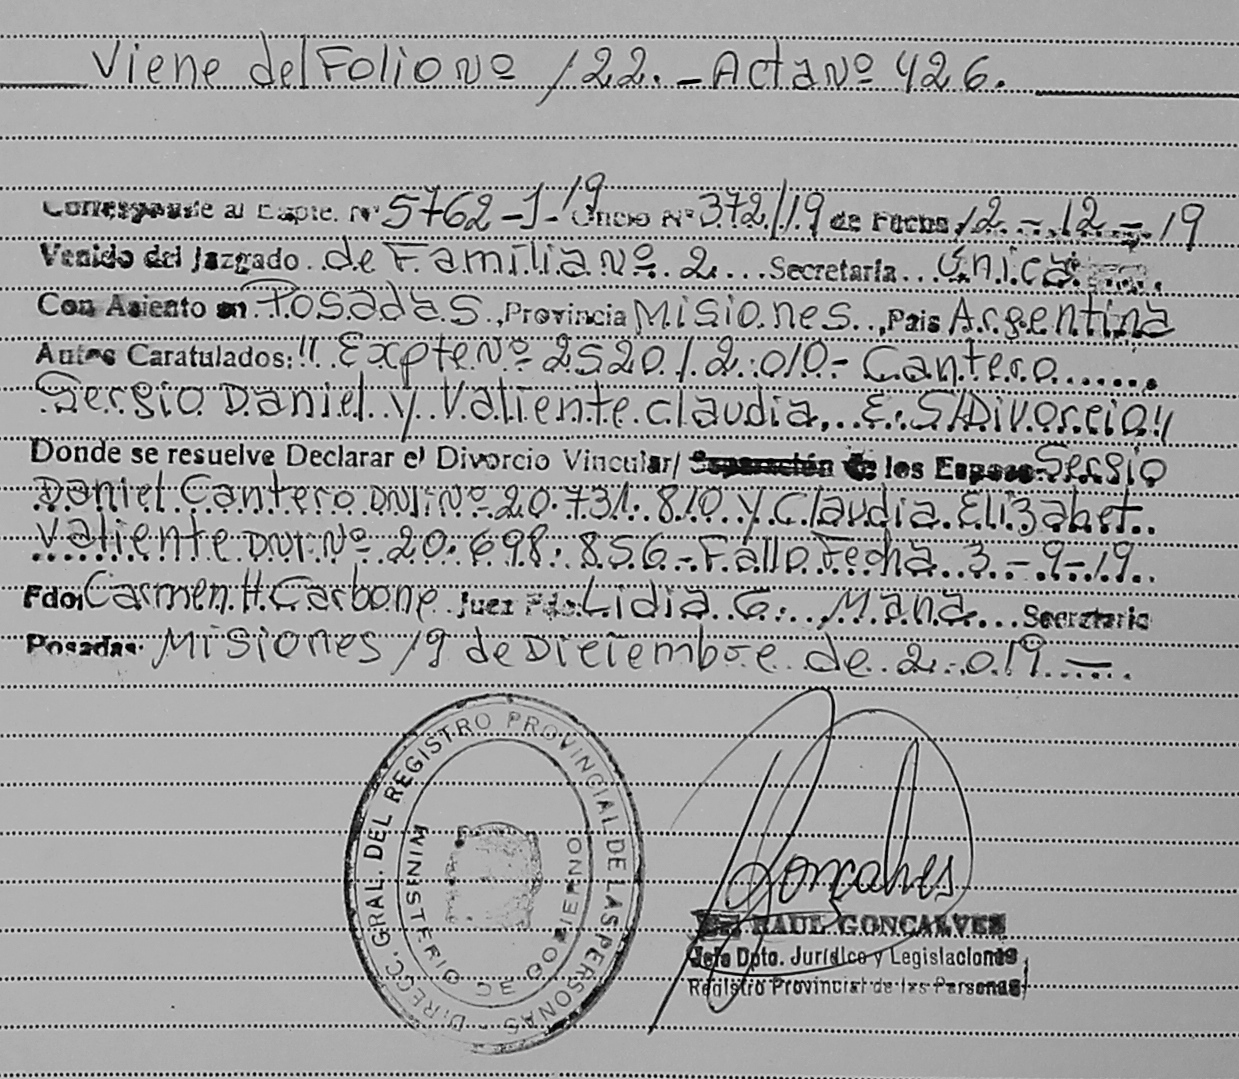 Viene del Folio Nº 122.- Acta Nº 426.
Corresponde al Expte. Nº 5762-J-19 Oficio Nº 372/19 de Fecha 12-12-19
Venido del Juzgado de Familia Nº 2 Secretaría Única
Con Asiento en Posadas, Provincia Misiones, Pais Argentina
Autos Caratulados: "Expte Nº 2520/2.010- Cantero
Sergio Daniel y Valiente Claudia E. S/Divorcio"
Donde se resuelve Declarar el Divorcio Vincular/ Separación de los Esposos Sergio
Daniel Cantero DNI. Nº 20.731.810 y Claudia Elizabet
Valiente DNI. Nº 20.698.856 - Fallo Fecha 3-9-19
Fdo: Carmen H. Carbone Juez Fdo: Lidia G. Mana Secretaria
Posadas. Misiones 19 de Diciembre de 2.019
DIRECC. GRAL. DEL REGISTRO PROVINCIAL DE LAS PERSONAS
MINISTERIO DE GOBIERNO
Goncalves
RAUL GONCALVES
Jefe Dpto. Jurídico y Legislaciones
Registro Provincial de las Personas